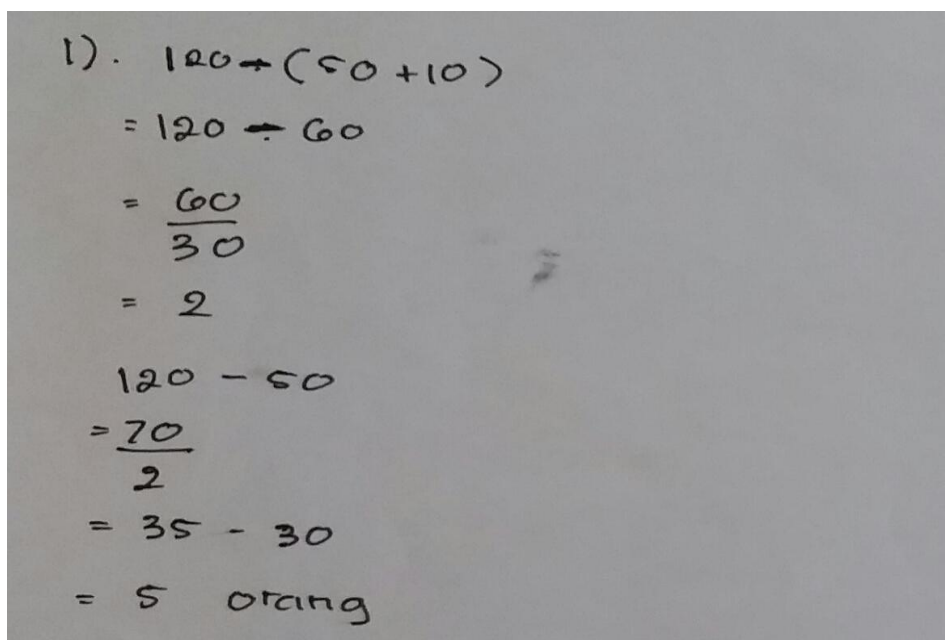 1). 120 - (50 + 10)
= 120 - 60
= 60
30
= 2
120 - 50
= 70
2
= 35 - 30
= 5 orang